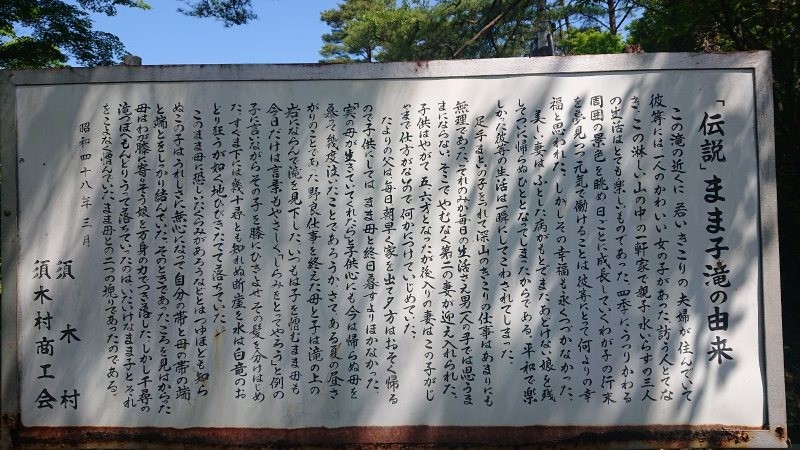 「伝説」まま子滝の由来
この滝の近くに若いきこりの夫婦が住んでいて
彼等には一人のかわいい女の子があった、訪う人とてな
きこの淋しい山の中の一軒家で親子水いらずの三人
の生活はとても楽しいものであった。四季にうつりかわる
周囲の景色を眺め日ごとに成長していくわが子の行末
を夢見つつ元気で働けることは彼等にとって何よりの幸
福と思われた。しかしその幸福も永くつづかなかった。
美しい妻はふとした病がもとでまだあどけない娘を残
して、ついに帰らぬひととなってしまったからである。平和で楽
しかった彼等の生活は一瞬にしてこわされてしまった。
足手まといの子をつれて深山のきこりの仕事はあまりにも
無理であった。それのみか毎日の生活さえ男一人の子では思うま
まにならない。そこでやむなく第二の妻が迎え入れられた。
子供はやがて五、六才となったが後入りの妻はこの子がじ
ゃまで仕方がないので、何かにつけていじめていた。
たよりの父は毎日朝早く家を出て夕方はおそく帰る
ので子供にしては、まま母と終日暮すよりほかなかった。
「実の母が生きていてくれたら」と子供心にも今は帰らぬ母を
慕って幾度泣いたことであろうか、さてある夏の昼さ
がりのことであった。野良仕事を終えた母と子は滝の上の
岩にならんで滝を見下した、いつもは子を憎むまま母も
今日だけは言葉もやさしく「しらみをとってやろう」と例の
子に言いながらその子を膝にひきよせ、その髪を分けはじめ
た、すぐま下には幾十尋とも知れぬ断崖を水は白竜のお
どり狂うが如く地ひびきたてて落ちていた。
このまま母に恐しいたくらみがあろうなどとはつゆほども知ら
ぬこの子はうれしさに無心になって自分の帯と母の帯の端
と端とをしっかり結んでいた。そのときであった。ころを見はからった
母はわが膝に寄りそう娘を万身の力でつき落した。しかし千尋の
滝つぼへもんどりうって落ちていったのは、いたいけなまま子と、それ
をこよなく憎んでいたまま母との二つの塊りであったのである。
昭和四十八年三月
須木村
須木村商工会